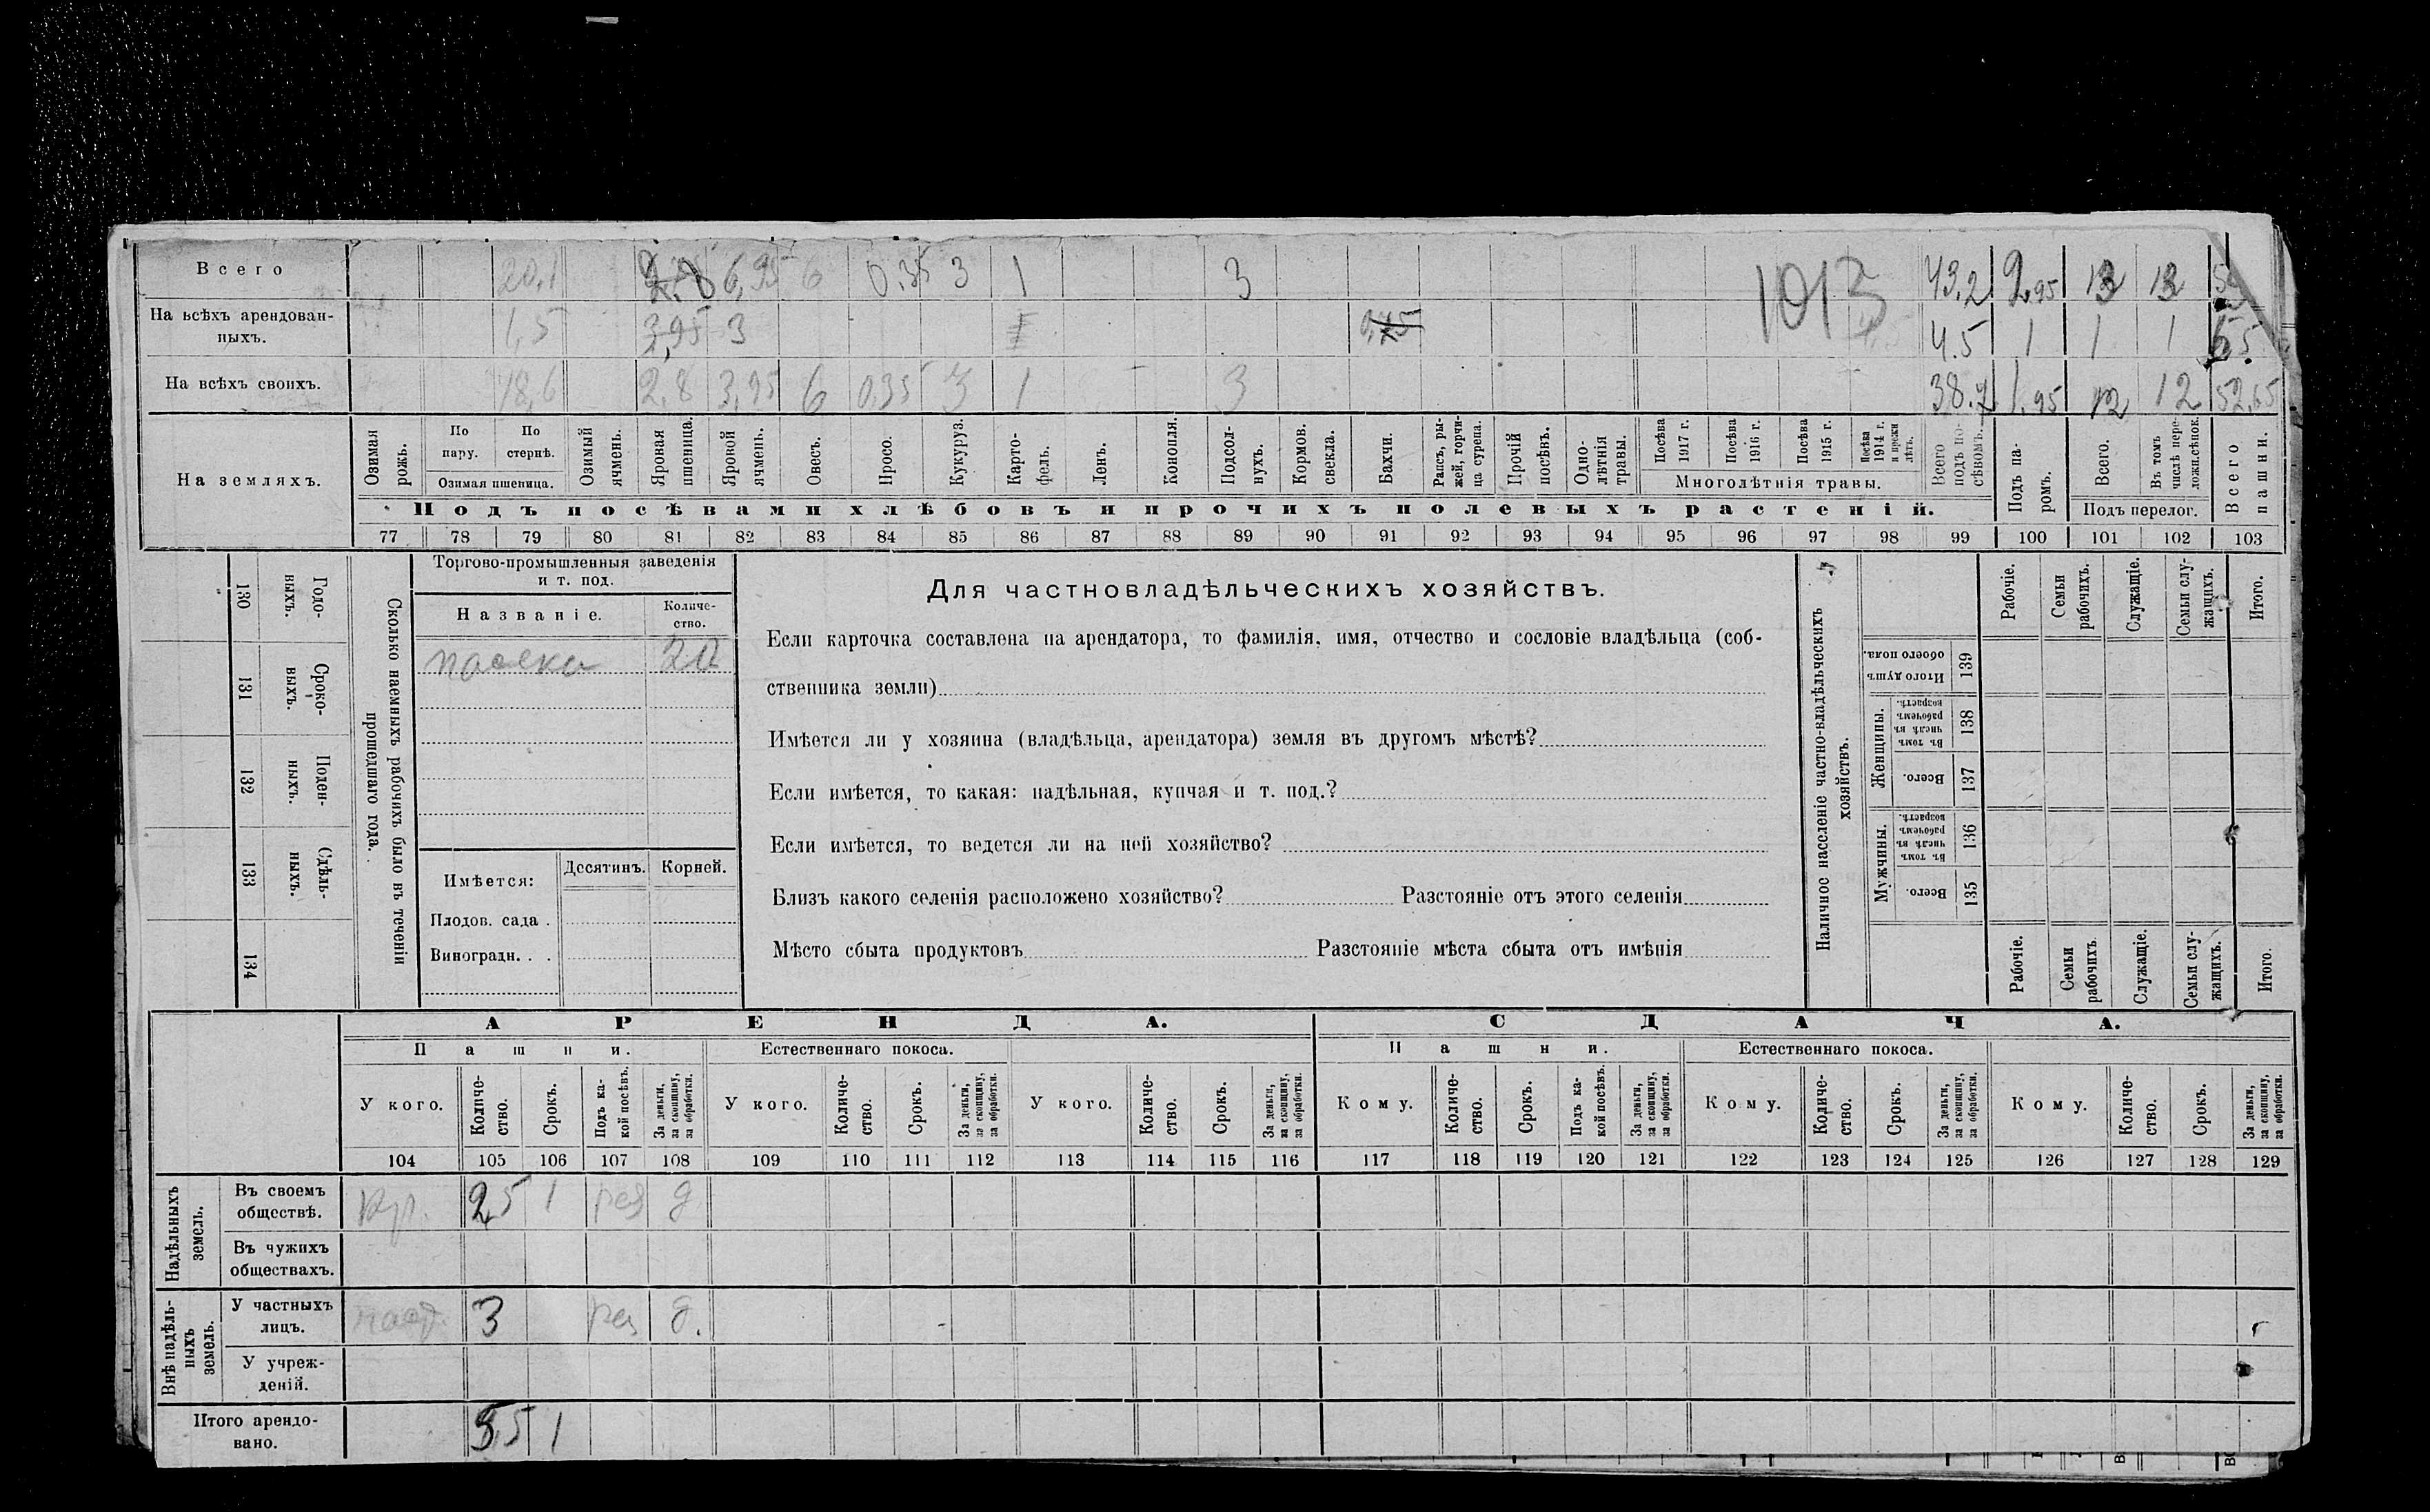 Всего 20,1 6,95 6 0.35 3 1 3 1013 43,2 2,95 13 13
На всѣхъ арендован-
ныхъ. 1,5 3,95 3 0,75 4.5 1 1 1 6,5
На всѣхъ своихъ. 18,6 2,8 3,95 6 0.35 3 1 3 38.7 1.95 12 12 52,65
На земляхъ.
Озимая рожь.
По пару.
По стернѣ.
Озимая пшеница.
Озимый ячмень.
Яровая пшеница.
Яровой ячмень.
Овесъ.
Просо.
Кукуруз.
Карто-
фель.
Ленъ.
Конопля.
Подсол-
нухъ.
Кормов. свекла.
Бахчи.
Рапсъ, ры-
жей, горчи-
ца сурепа.
Прочій посѣвъ.
Одно-
лѣтнія травы.
Посѣва 1917 г.
Посѣва 1916 г.
Посѣва 1915 г.
Посѣва 1914 г. и прежн лѣтъ.
Многолѣтнія травы.
Всего подъ по-
сѣвомъ.
Подъ па-
ромъ.
Всего.
Въ томъ числѣ пере-
ложн.сѣнок.
Подъ перелог.
Всего пашни.
Подъ посѣвами хлѣбовъ и прочихъ полевыхъ растеній.
77 78 79 80 81 82 83 84 85 86 87 88 89 90 91 92 93 94 95 96 97 98 99 100 101 102 103
130 Годо-
ныхъ.
131 Сроко-
ныхъ.
132 Поден-
ныхъ.
133 Сдѣль-
ныхъ.
134
Сколько наемныхъ рабочихъ было въ теченіи
прошедшаго года.
Торгово-промышленныя заведенія
и т. под.
Названіе.
Количе-
ство.
пасека 20
Имѣется:
Десятинъ.
Корней.
Плодов. сада .
Виноградн. . .
Для частновладѣльческихъ хозяйствъ.
Если карточка составлена на арендатора, то фамилія, имя, отчество и сословіе владѣльца (соб-
ственника земли)
Имѣется ли у хозяина (владѣльца, арендатора) земля въ другомъ мѣстѣ?
Если имѣется, то какая: надѣльная, купчая и т. под.?
Если имѣется, то ведется ли на ней хозяйство?
Близъ какого селенія расположено хозяйство? Разстояніе отъ этого селенія
Мѣсто сбыта продуктовъ Разстояніе мѣста сбыта отъ имѣнія
Наличное населеніе частно-владѣльческихъ
хозяйствъ.
Рабочіе.
Семьи рабочихъ.
Служащіе.
Семьи слу-
жащихъ.
Итого.
Итого душъ обоего пола. 139
Женщины.
Въ томъ числѣ въ рабочемъ возрастѣ. 138
Всего. 137
Мужчины.
Въ томъ числѣ въ рабочемъ возрастѣ. 136
Всего. 135
Рабочіе.
Семьи рабочихъ.
Служащіе.
Семьи слу-
жащихъ.
Итого.
АРЕНДА.
СДАЧА.
Пашни.
Естественнаго покоса.
Пашни.
Естественнаго покоса.
У кого.
Количе-
ство.
Срокъ.
Подъ ка-
кой посѣвъ.
За деньги, за скопщину, за обработки.
У кого.
Количе-
ство.
Срокъ.
За деньги, за скопщину, за обработки.
У кого.
Количе-
ство.
Срокъ.
За деньги, за скопщину, за обработки.
Кому.
Количе-
ство.
Срокъ.
Подъ ка-
кой посѣвъ.
За деньги, за скопщину, за обработки.
Кому.
Количе-
ство.
Срокъ.
За деньги, за скопщину, за обработки.
Кому.
Количе-
ство.
Срокъ.
За деньги, за скопщину, за обработки.
104 105 106 107 108 109 110 111 112 113 114 115 116 117 118 119 120 121 122 123 124 125 126 127 128 129
Надѣльныхъ земель.
Въ своемъ
обществѣ. 2,5 1 д
Въ чужихъ
обществахъ.
Внѣ надѣль-
ныхъ земель.
У частныхъ
лицъ. 3 д.
У учреж-
деній.
Итого арендо-
вано. 5,5 1